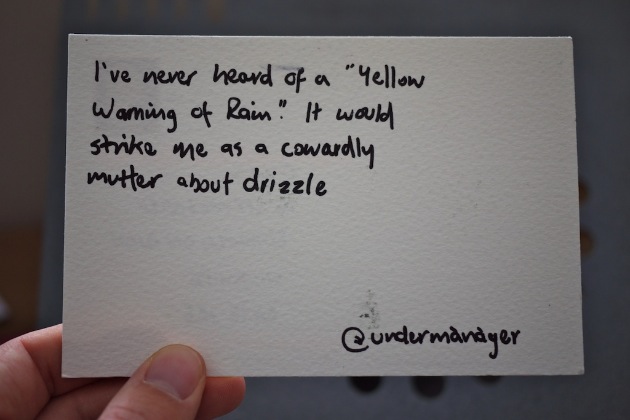 I've never heard of a "Yellow
Warning of Rain". It would
strike me as a cowardly
mutter about drizzle
@undermanager